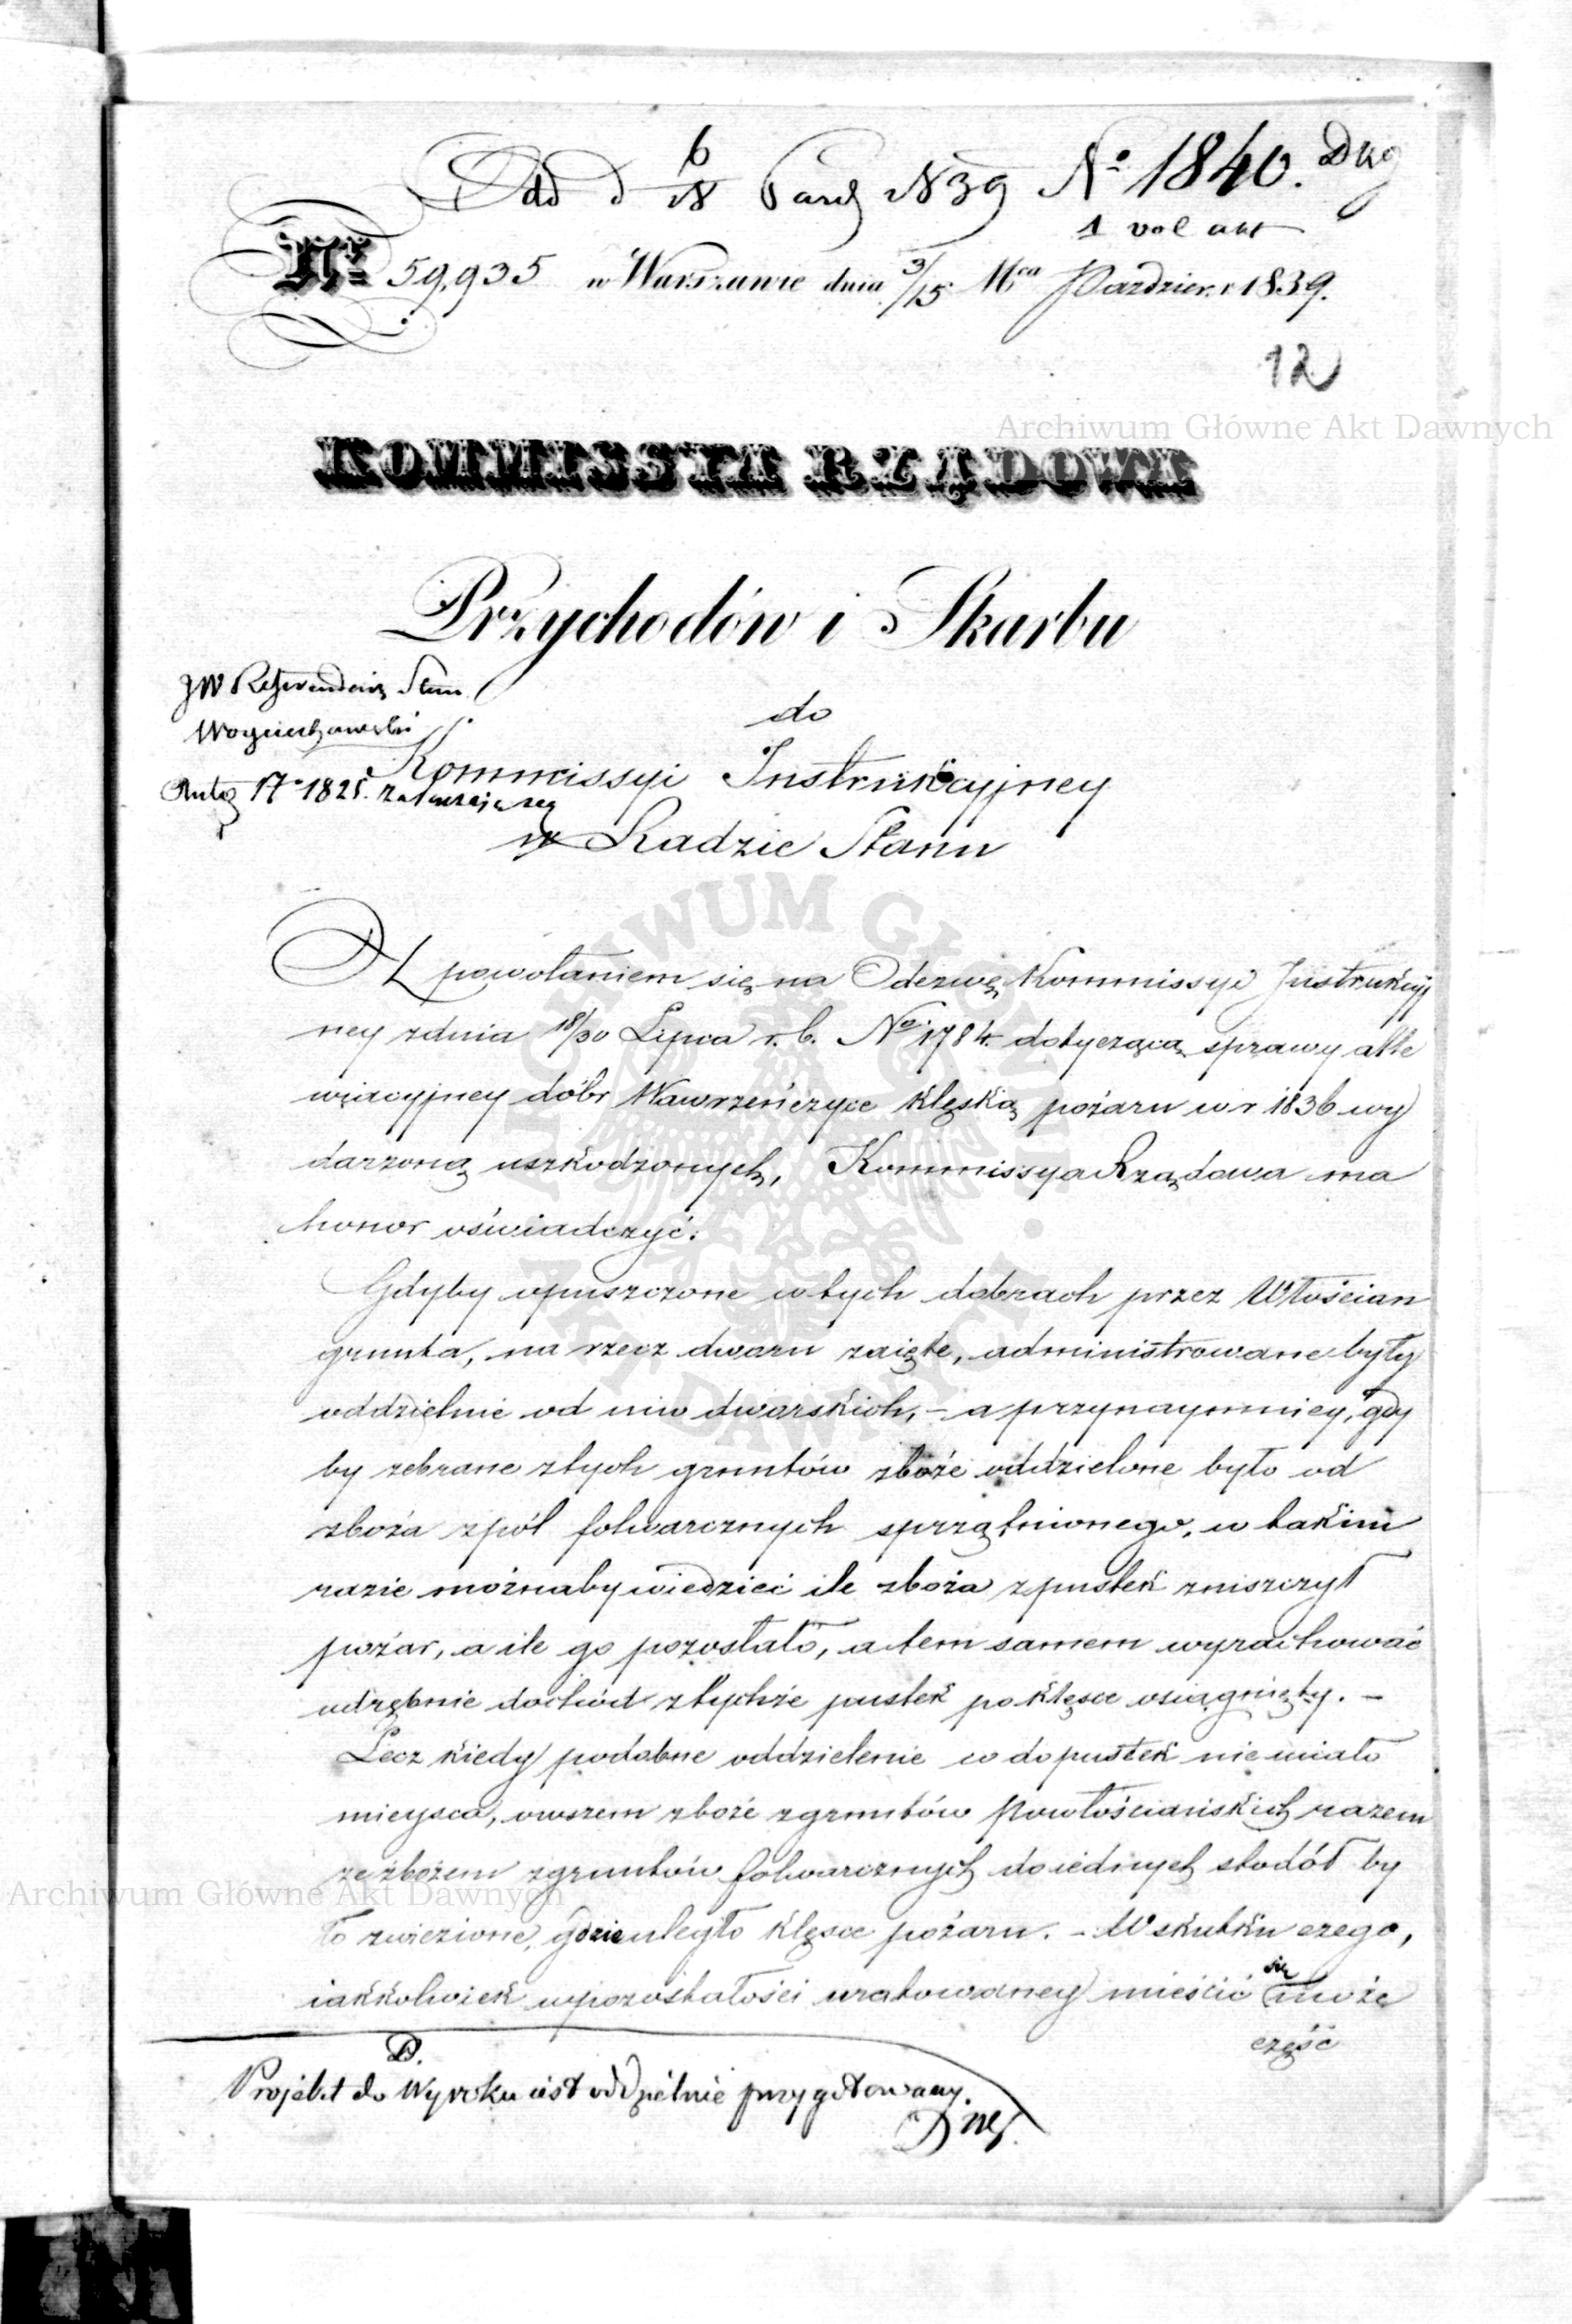 dd d 6/18 Paźd 839 No 1840. Dkg
1 vol akt
Nr 59,935 w Warszawie dnia 3/15 Mca Paździer. r 1839.
12
Archiwum Główne Akt Dawnych
KOMMISSYA RZĄDOWA
Przychodów i Skarbu
JW Referendarz Stanu
Woyciechowski
do
Kommissyi Instrukcyjney
17 1825.
w Radzie Stanu
Z powołaniem się na Odezwę Kommissyi Instrukcyj
ney z dnia 18/30 Lipca r. b. No 1784. dotyczącą sprawy alle
wiacyjney dóbr Wawrzeńczyce klęską pożaru w r 1836 wy
darzoną uszkodzonych, Kommissya Rządowa ma
honor oświadczyć:
Gdyby opuszczone w tych dobrach przez Włościan
grunta, na rzecz dworu zaięte, administrowane były
oddzielnie od niw dworskich, – a przynaymniey, gdy
by zebrane z tych gruntów zboże oddzielone było od
zboża z pól folwarcznych sprzątnionego, w takim
razie możnaby wiedzieć ile zboża z pustek zniszczył
pożar, a ile go pozostało, a tem samem wyrachować
odrębnie dochód z tychże pustek po klęsce osiągnięty. –
Lecz kiedy podobne oddzielenie co do pustek nie miało
mieysca, owszem zboże z gruntów powłościańskich razem
ze zbożem z gruntów folwarcznych do iednych stodół by
Archiwum Główne Akt Dawnych
ło zwiezione, gdzie uległo klęsce pożaru. – W skutku czego,
iakkolwiek w pozostałości uratowaney mieścić się może
część
D.
Projekt do Wyroku iest oddzielnie przygotowany.
ARCHIWUM GŁÓWNE AKT DAWNYCH